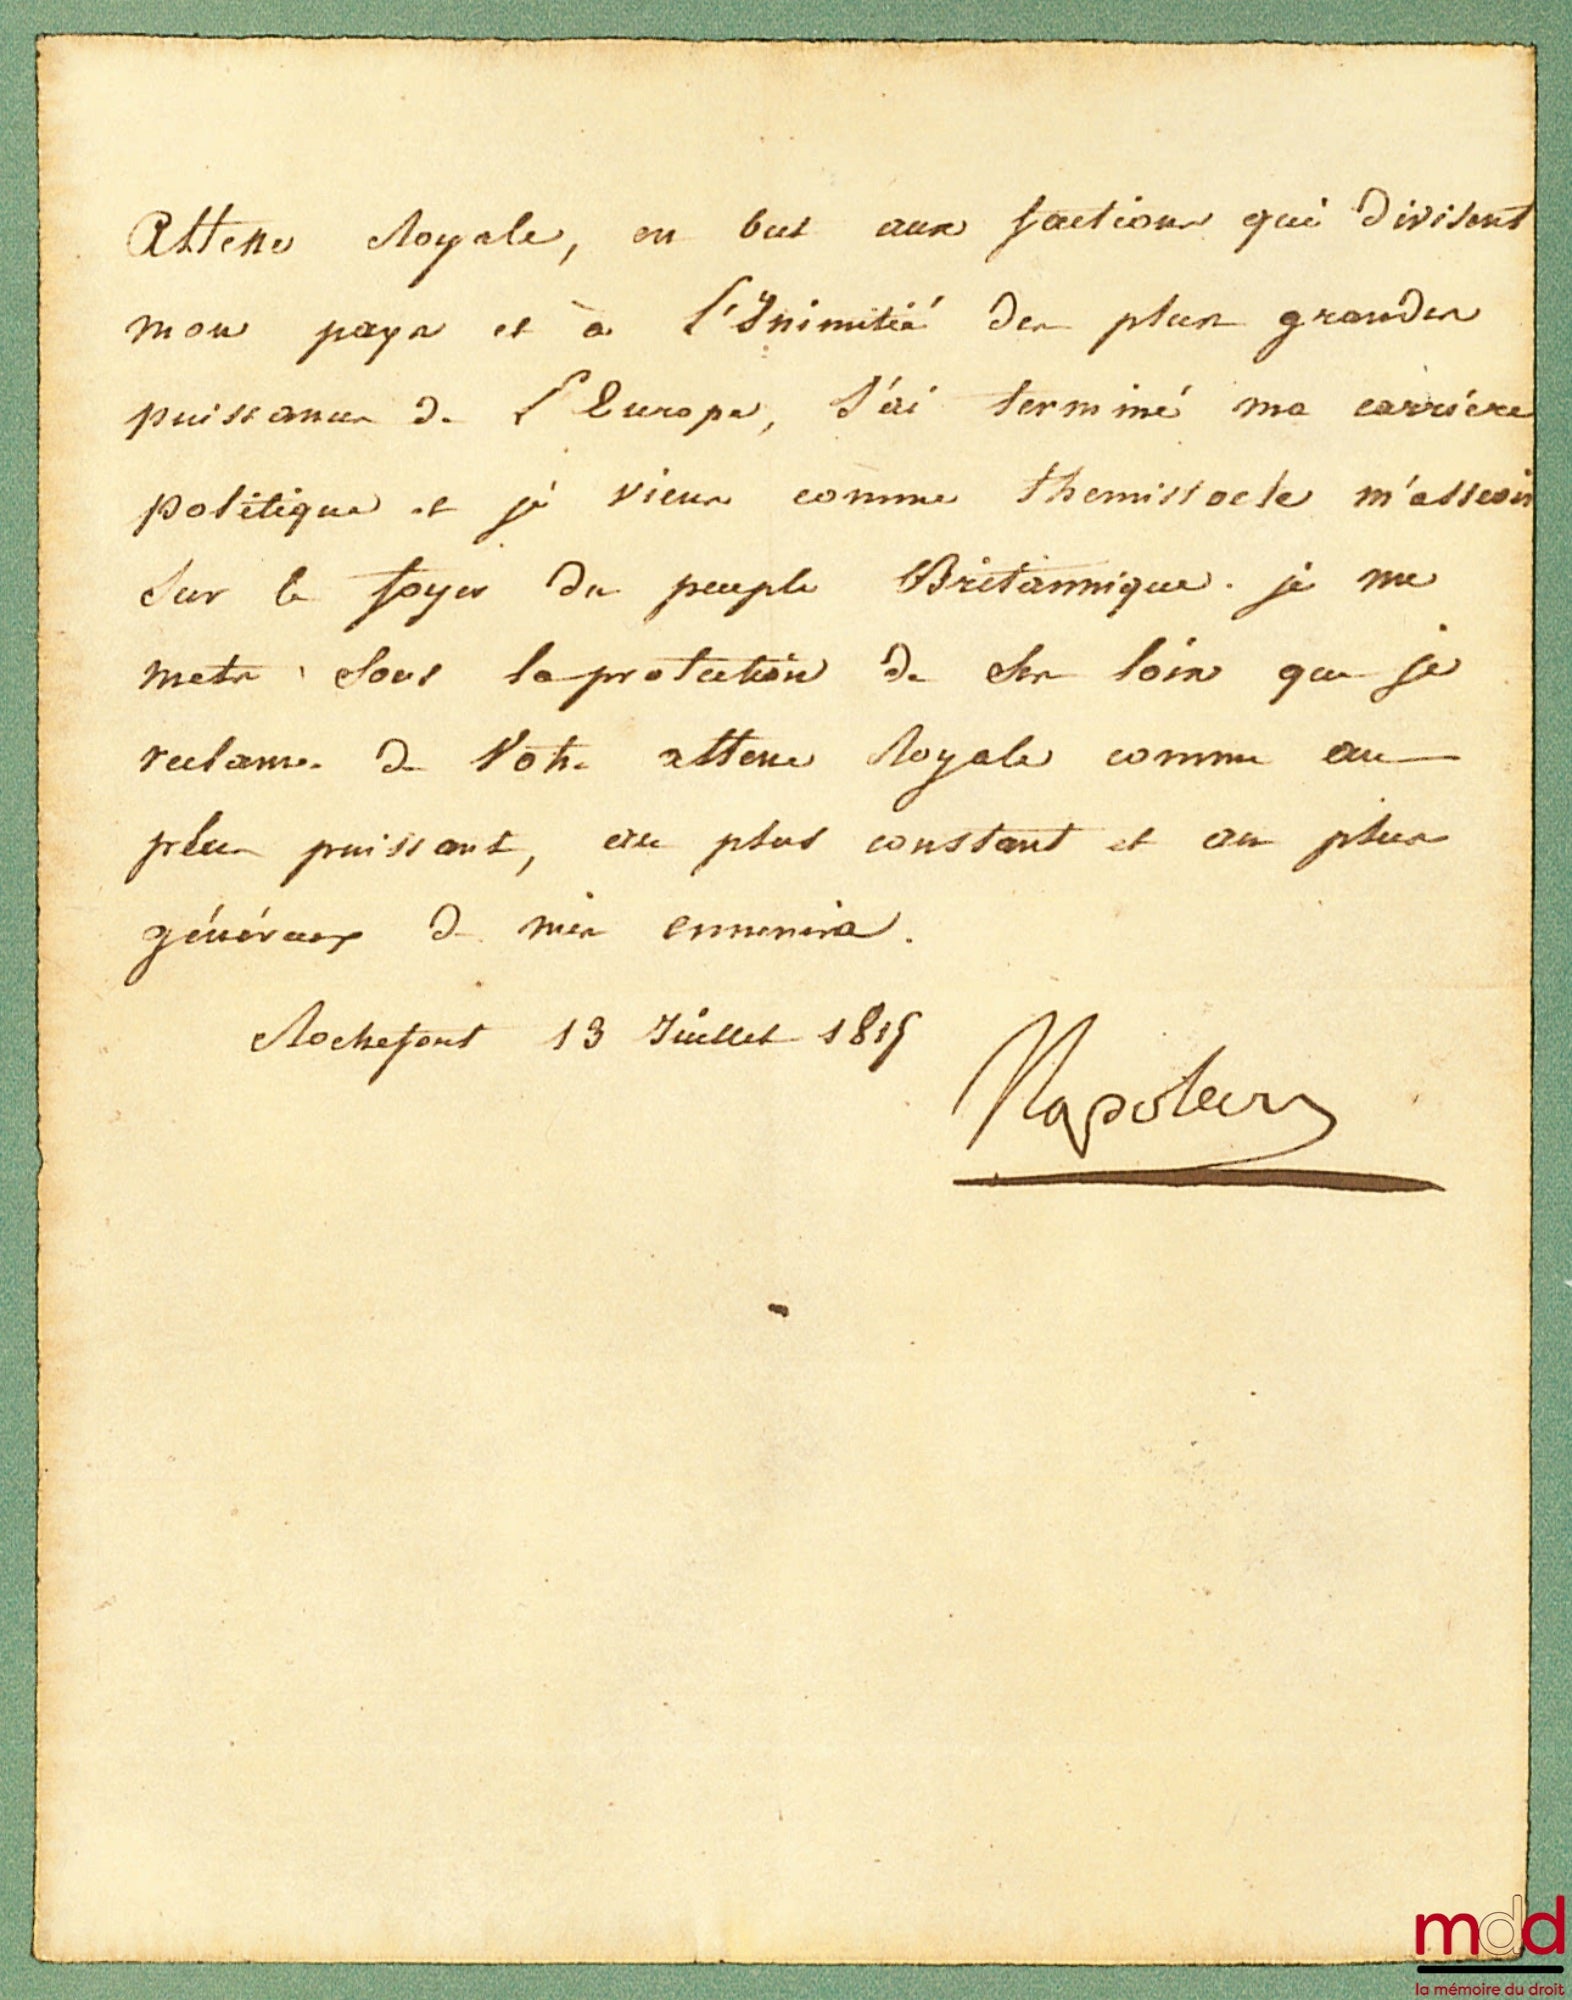 Altesse Royale, en but aux factions qui divisent
mon pays et à l'Inimitié des plus grandes
puissances de l'Europe, J'ai terminé ma carrière
politique et je viens comme themistocle m'asseoir
Sur le foyer du peuple Britannique. je me
mets Sous la protection de Ses loix que je
reclame de Votre altesse Royale comme au
plus puissant, au plus constant et au plus
généreux de mes ennemis.
Rochefort 13 Juillet 1815
Napoleon
mdd
la mémoire du droit